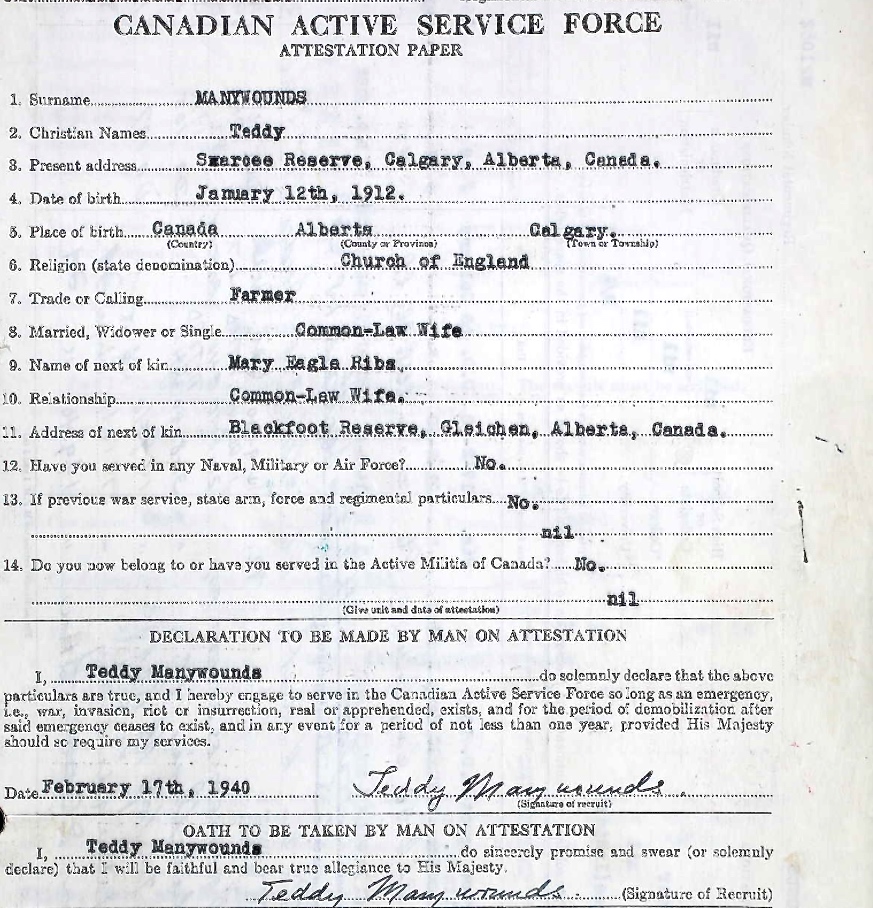 CANADIAN ACTIVE SERVICE FORCE
ATTESTATION PAPER
1. Surname MANYWOUNDS
2. Christian Names Teddy
3. Present address Sxarcee Reserve, Calgary, Alberta, Canada.
4. Date of birth January 12th, 1912.
5. Place of birth Canada Alberta Calgary.
(Country) (County or Province) (Town or Township)
6. Religion (state denomination) Church of England
7. Trade or Calling Farmer
8. Married, Widower or Single Common-Law Wife
9. Name of next of kin Mary Eagle Ribs.
10. Relationship Common-Law Wife.
11. Address of next of kin Blackfoot Reserve, Gleichen, Alberta, Canada.
12. Have you served in any Naval, Military or Air Force? No.
13. If previous war service, state arm, force and regimental particulars No.
nil
14. Do you now belong to or have you served in the Active Militia of Canada? No.
nil
(Give unit and date of attestation)
DECLARATION TO BE MADE BY MAN ON ATTESTATION
I, Teddy Manywounds do solemnly declare that the above
particulars are true, and I hereby engage to serve in the Canadian Active Service Force so long as an emergency,
i.e., war, invasion, riot or insurrection, real or apprehended, exists, and for the period of demobilization after
said emergency ceases to exist, and in any event for a period of not less than one year, provided His Majesty
should so require my services.
Date February 17th, 1940 Teddy Manywounds.
(Signature of recruit)
OATH TO BE TAKEN BY MAN ON ATTESTATION
I, Teddy Manywounds do sincerely promise and swear (or solemnly
declare) that I will be faithful and bear true allegiance to His Majesty.
Teddy Manywounds. (Signature of Recruit)